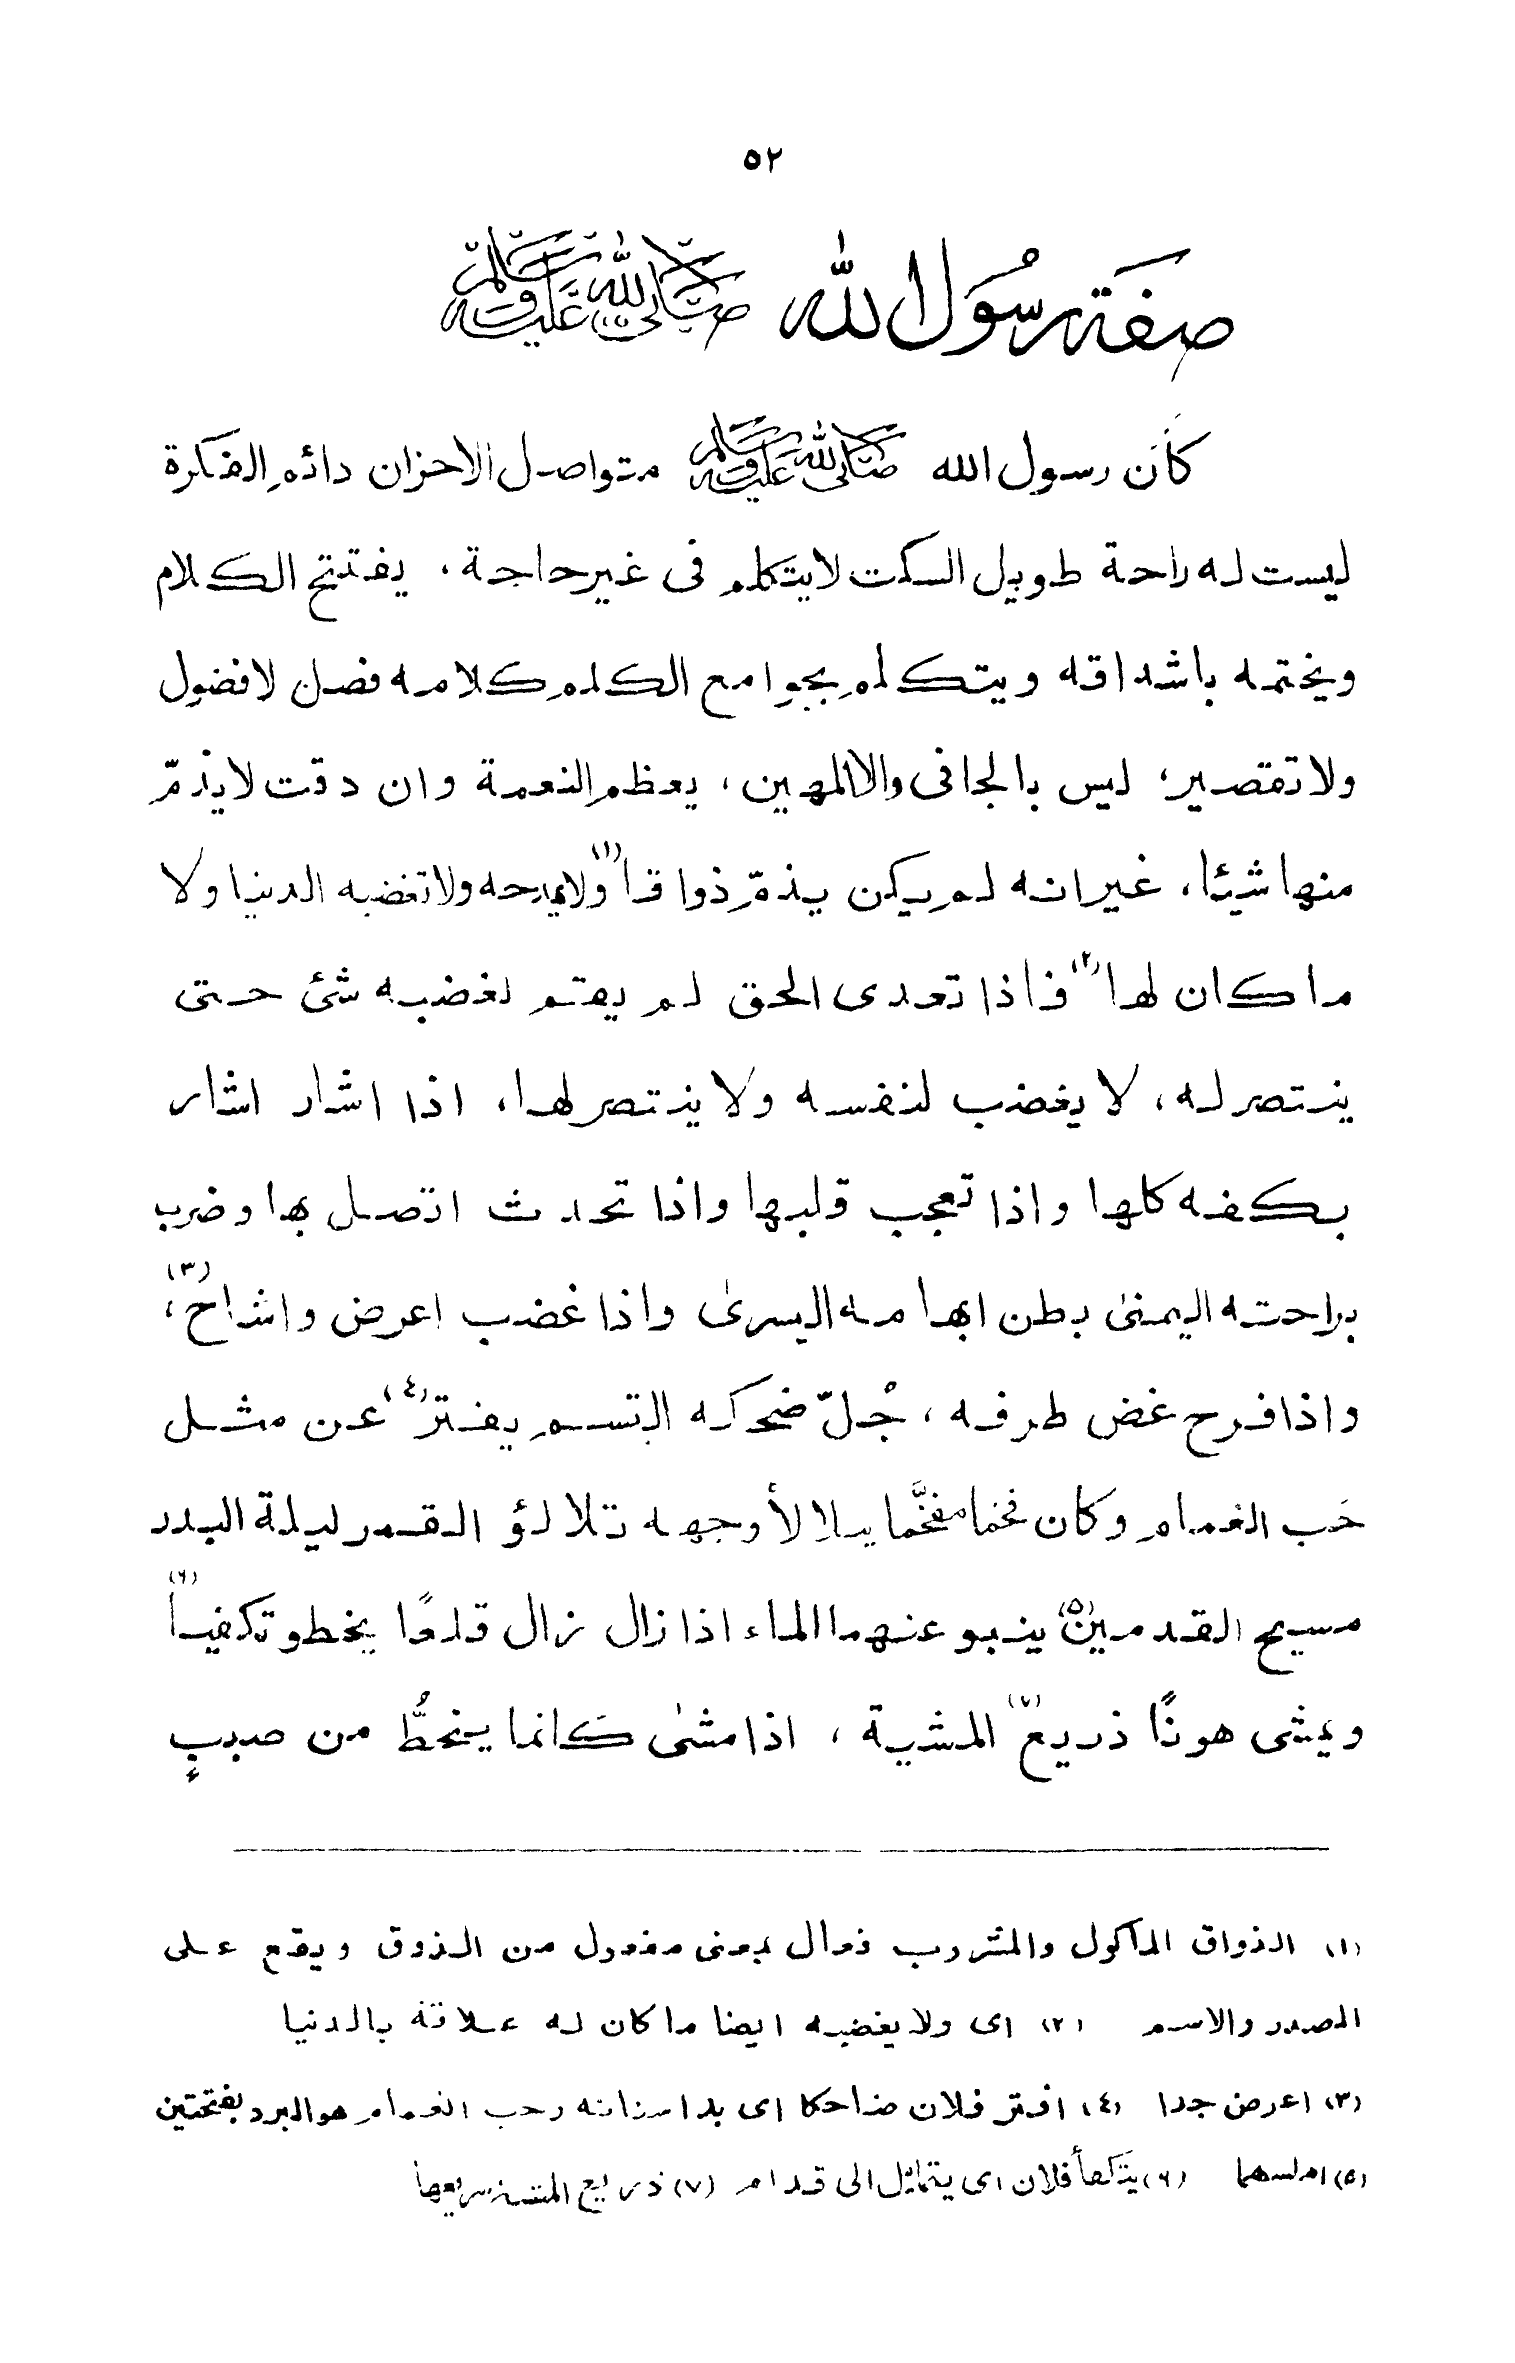 ٥٢
صفة رسُول الله صَلَّى اللهُ عَلَيْهِ وَسَلَّمَ
كَانَ رسول الله صَلَّى اللهُ عَلَيْهِ وَسَلَّمَ متواصل الاحزان دائم الفكرة
ليست له راحة طويل السكت لا يتكلم فى غير حاجة، يفتتح الكلام
ويختمه باشداقه ويتكلم بجوامع الكلم كلامه فصل لا فضول
ولا تقصير، ليس بالجافى والا المهين، يعظم النعمة وان دقت لا يذمّ
منها شيئا، غير انه لم يكن يذمّ ذواقا(١) ولا يمدحه ولا تغضبه الدنيا ولا
ما كان لها(٢) فاذا تعدى الحق لم يقم لغضبه شئ حتى
ينتصر له، لا يغضب لنفسه ولا ينتصر لها، اذا اشار اشار
بكفه كلها واذا تعجب قلبها واذا تحدث اتصل بها وضرب
براحته اليمنىٰ بطن ابهامه اليسرىٰ واذا غضب اعرض واشاح(٣)،
واذا فرح غض طرفه، جُلّ ضحكه التبسم يفترّ(٤) عن مثل
حَب الغمام وكان فخما مفخَّما يتلالأ وجهه تلالؤ القمر ليلة البدر
مسيح القدمين(٥) ينبو عنهما الماء اذا زال زال قلعًا يخطو تكفيا(٦)
ويمشى هونًا ذريع(٧) المشية، اذا مشىٰ كَانما ينحطُّ من صببٍ
(١) الذواق المأكول والمشروب فعال بمعنى مفعول من الذوق ويقع على
المصدر والاسم (٢) اى ولا يغضبه ايضا ما كان له علاقة بالدنيا
(٣) اعرض جدا (٤) افتر فلان ضاحكا اى بدا سنانه وحب الغمام هو البرد بفتحتين
(٥) املسهما (٦) يتكفأ فلان اى يتمايل الى قدام (٧) ذريع المشية سريعها